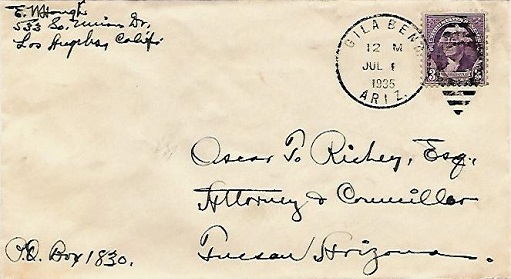 E. W. Hough
533 So. Dr.
Los Angeles, Calif.
GILA BEND
12 M
JUL 1
1935
ARIZ.
3 3
Oscar T. Richey, Esq.,
Attorney & Councillor
P.O. Box 1830.
Tucson Arizona.